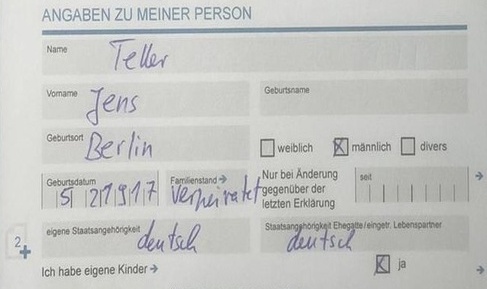 ANGABEN ZU MEINER PERSON
Name
Teller
Vorname
Jens
Geburtsname
Geburtsort
Berlin
weiblich männlich divers
Geburtsdatum
5 2 1 9 1 7
Familienstand →
verheiratet
Nur bei Änderung
gegenüber der
letzten Erklärung
seit
→
2+
eigene Staatsangehörigkeit
deutsch
Staatsangehörigkeit Ehegatte/eingetr. Lebenspartner
deutsch
Ich habe eigene Kinder →
ja
→